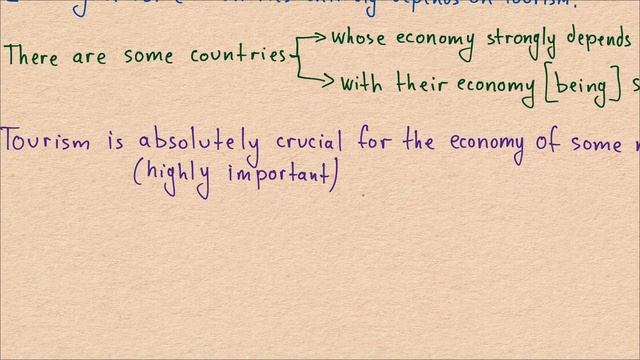 depends on tourism.
whose economy strongly depends
There are some countries
with their economy [being]
Tourism is absolutely crucial for the economy of some
(highly important)